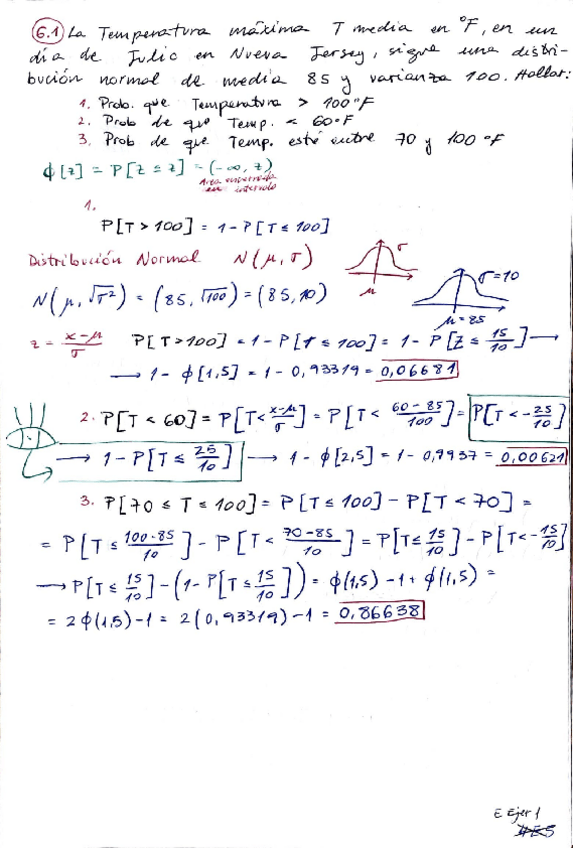 6.1 La Temperatura máxima T media en °F, en un
día de Julio en Nueva Jersey, sigue una distri-
bución normal de media 85 y varianza 100. Hallar:
1. Prob. que Temperatura > 100°F
2. Prob de que Temp. < 60°F
3. Prob de que Temp. esté entre 70 y 100 °F
ϕ[z] = P[Z ≤ z] = (-∞, z)
Area encerrada
en intervalo
1.
P[T > 100] = 1 - P[T ≤ 100]
Distribución Normal N(μ, σ)
σ
μ
N(μ, √σ²) = (85, √100) = (85, 10)
σ=10
μ=85
z = x-μ/σ P[T > 100] = 1 - P[T ≤ 100] = 1 - P[Z ≤ 15/10] →
→ 1 - ϕ[1,5] = 1 - 0,93319 = 0,06681
2. P[T < 60] = P[T < x-μ/σ] = P[T < 60-85/100] = P[T < -25/10]
→ 1 - P[T ≤ 25/10] → 1 - ϕ[2,5] = 1 - 0,9937 = 0,00621
3. P[70 ≤ T ≤ 100] = P[T ≤ 100] - P[T < 70] =
= P[T ≤ 100-85/10] - P[T < 70-85/10] = P[T ≤ 15/10] - P[T < -15/10]
→ P[T ≤ 15/10] - (1 - P[T ≤ 15/10]) = ϕ(1,5) - 1 + ϕ(1,5) =
= 2ϕ(1,5) - 1 = 2(0,93319) - 1 = 0,86638
E Ejer 1